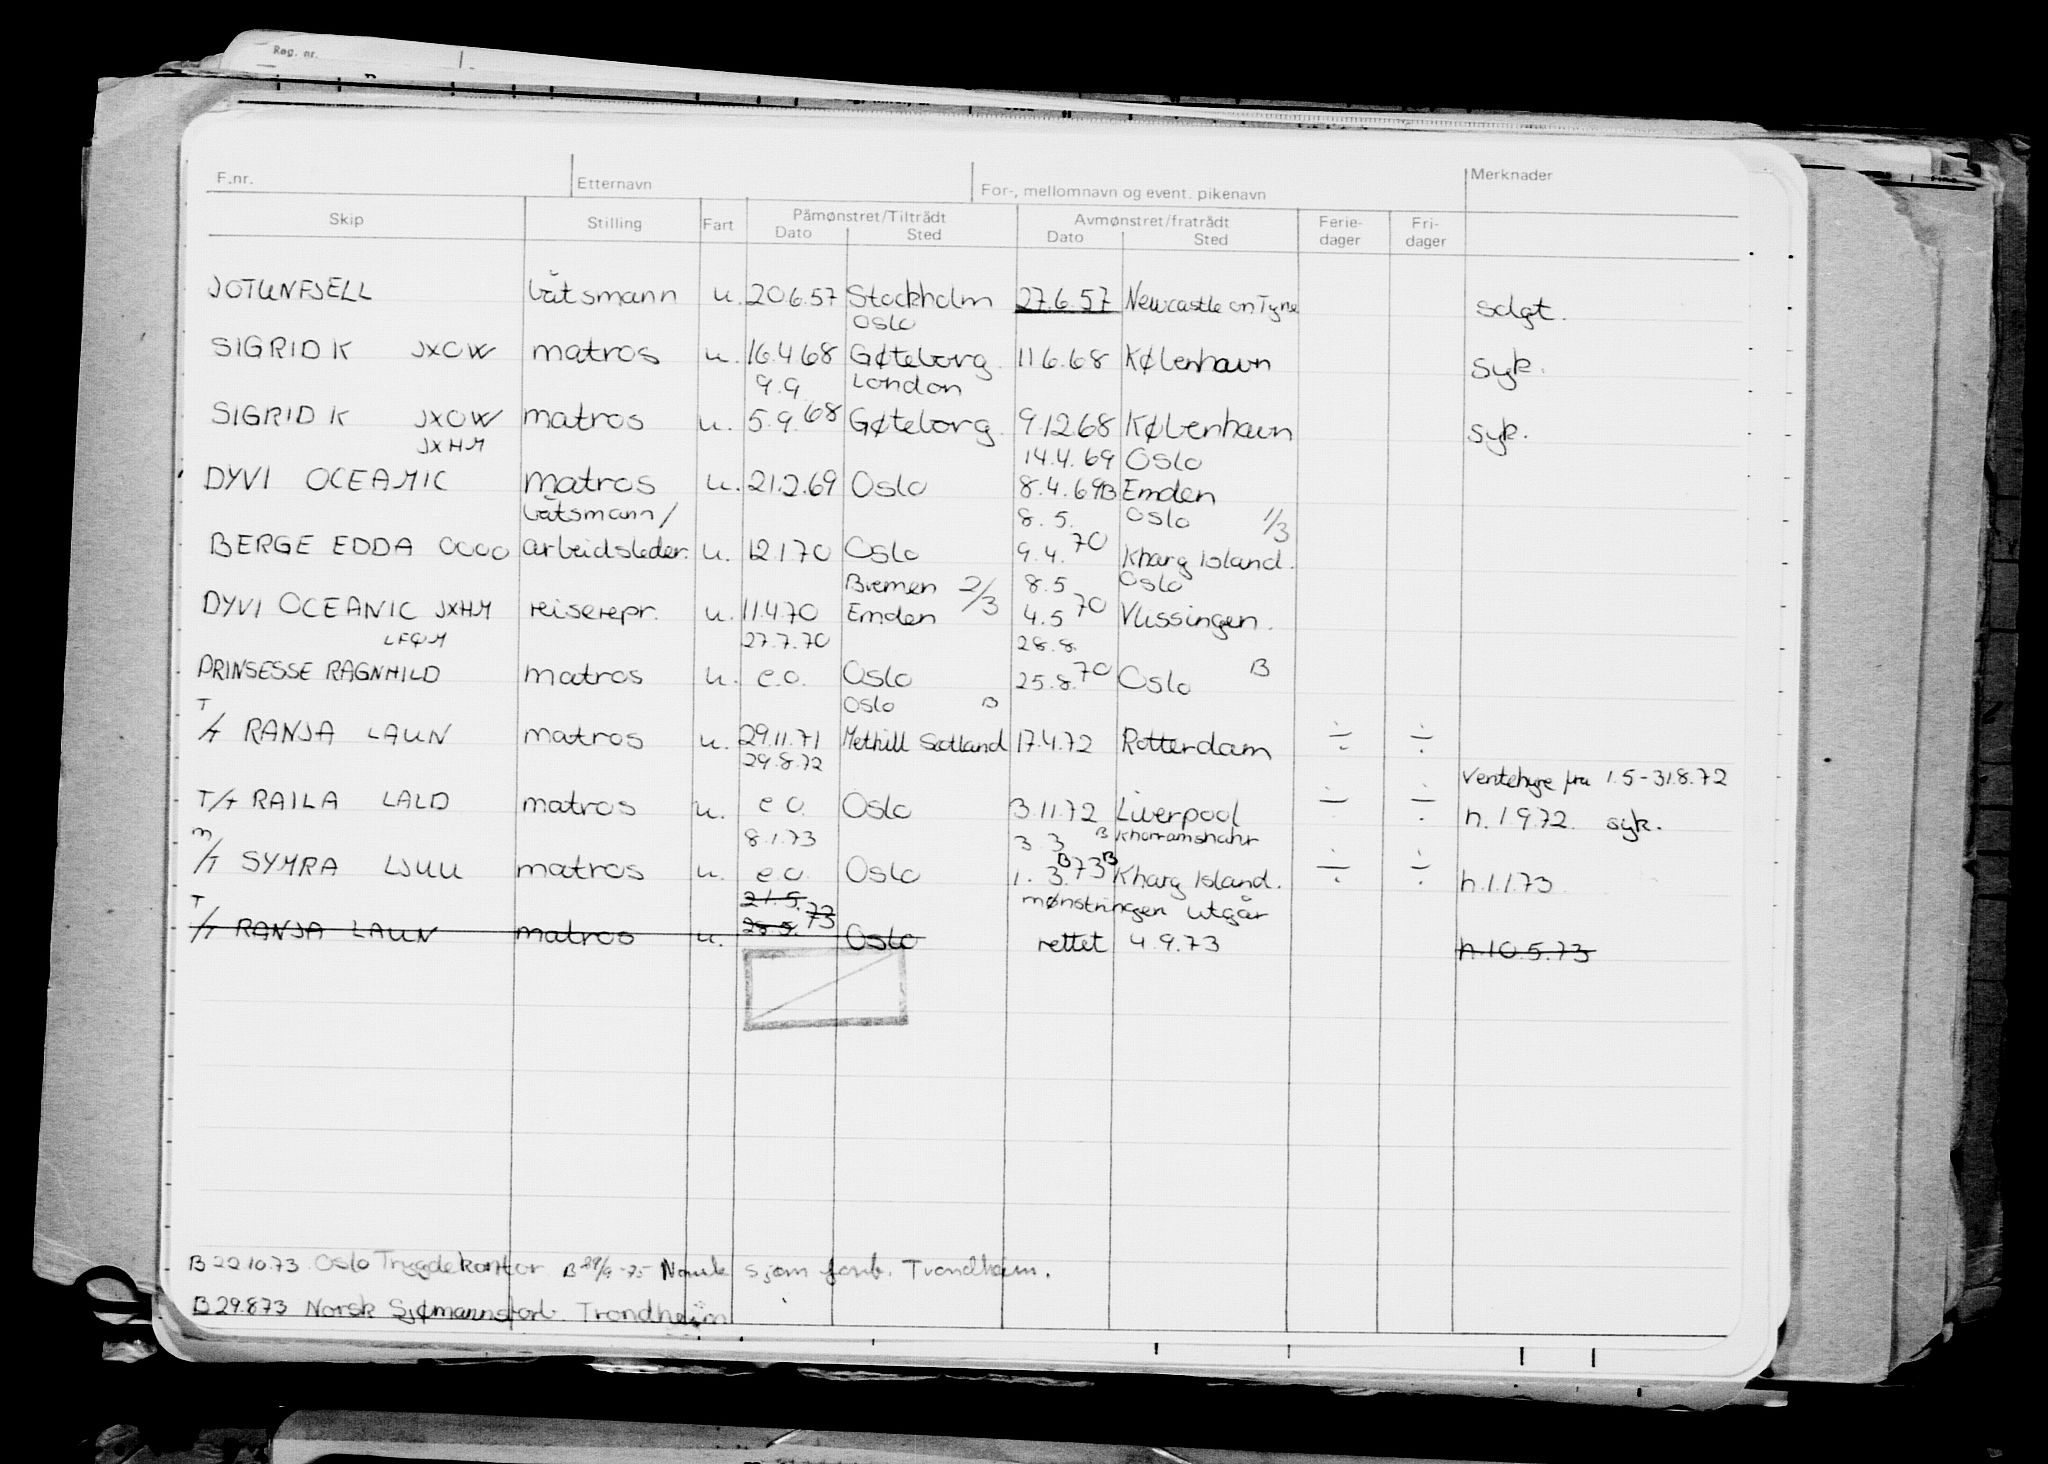 Reg. nr.
F.nr. Etternavn For-, mellomnavn og event. pikenavn Merknader
Skip Stilling Fart Påmønstret/Tiltrådt Avmønstret/fratrådt Ferie- Fri-
Dato Sted Dato Sted dager dager
JOTUNFJELL båtsmann u. 20.6.57 Stockholm 27.6.57 Newcastle on Tyne solgt.
Oslo
SIGRID K JXOW matros u. 16.4.68 Gøteborg 11.6.68 København syk.
9.9. London
SIGRID K JXOW matros u. 5.9.68 Gøteborg 9.12.68 København syk.
JXHM 14.4.69 Oslo
DYVI OCEANIC matros u. 21.2.69 Oslo 8.4.69 B Emden
båtsmann/ 8.5. Oslo 1/3
BERGE EDDA OOOO arbeidsleder. u. 12.1.70 Oslo 9.4.70 Kharg Island.
Bremen 2/3 8.5 Oslo
DYVI OCEANIC JXHM reiserepr. u. 11.4.70 Emden 4.5.70 Vlissingen.
LFQM 27.7.70 28.8.
PRINSESSE RAGNHILD matros u. e.o. Oslo 25.8.70 Oslo B
Oslo B
T/T RANJA LAUN matros u. 29.11.71 Methill Scotland 17.4.72 Rotterdam ÷ ÷
29.8.72 Ventehyre fra 1.5-31.8.72
T/T RAILA LALD matros u. e.o. Oslo 3.11.72 Liverpool ÷ ÷ h. 1.9.72. syk.
8.1.73 3.3 B Khorramshahr
M/T SYMRA LJUU matros u. e.o. Oslo 1.3.B73B Kharg Island. ÷ ÷ h.1.1.73
21.5. mønstringen utgår
T/T RANJA LAUN matros u. 28.5.73 Oslo rettet 4.9.73 h.10.5.73
B 22.10.73 Oslo Trygdekontor B 29/9-75 Norsk sjøm forb. Trondheim.
B 29.8.73 Norsk Sjømannsforb. Trondheim